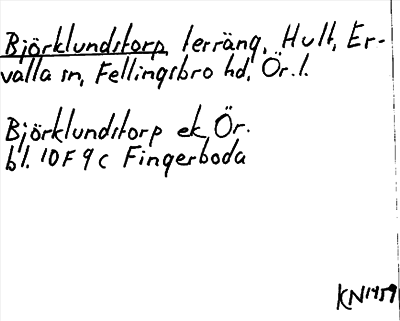 Björklundstorp, terräng, Hult, Er-
valla sn, Fellingsbro hd, Ör. l.
Björklundstorp ek, Ör.
bl. 10F 9c Fingerboda
KN1959